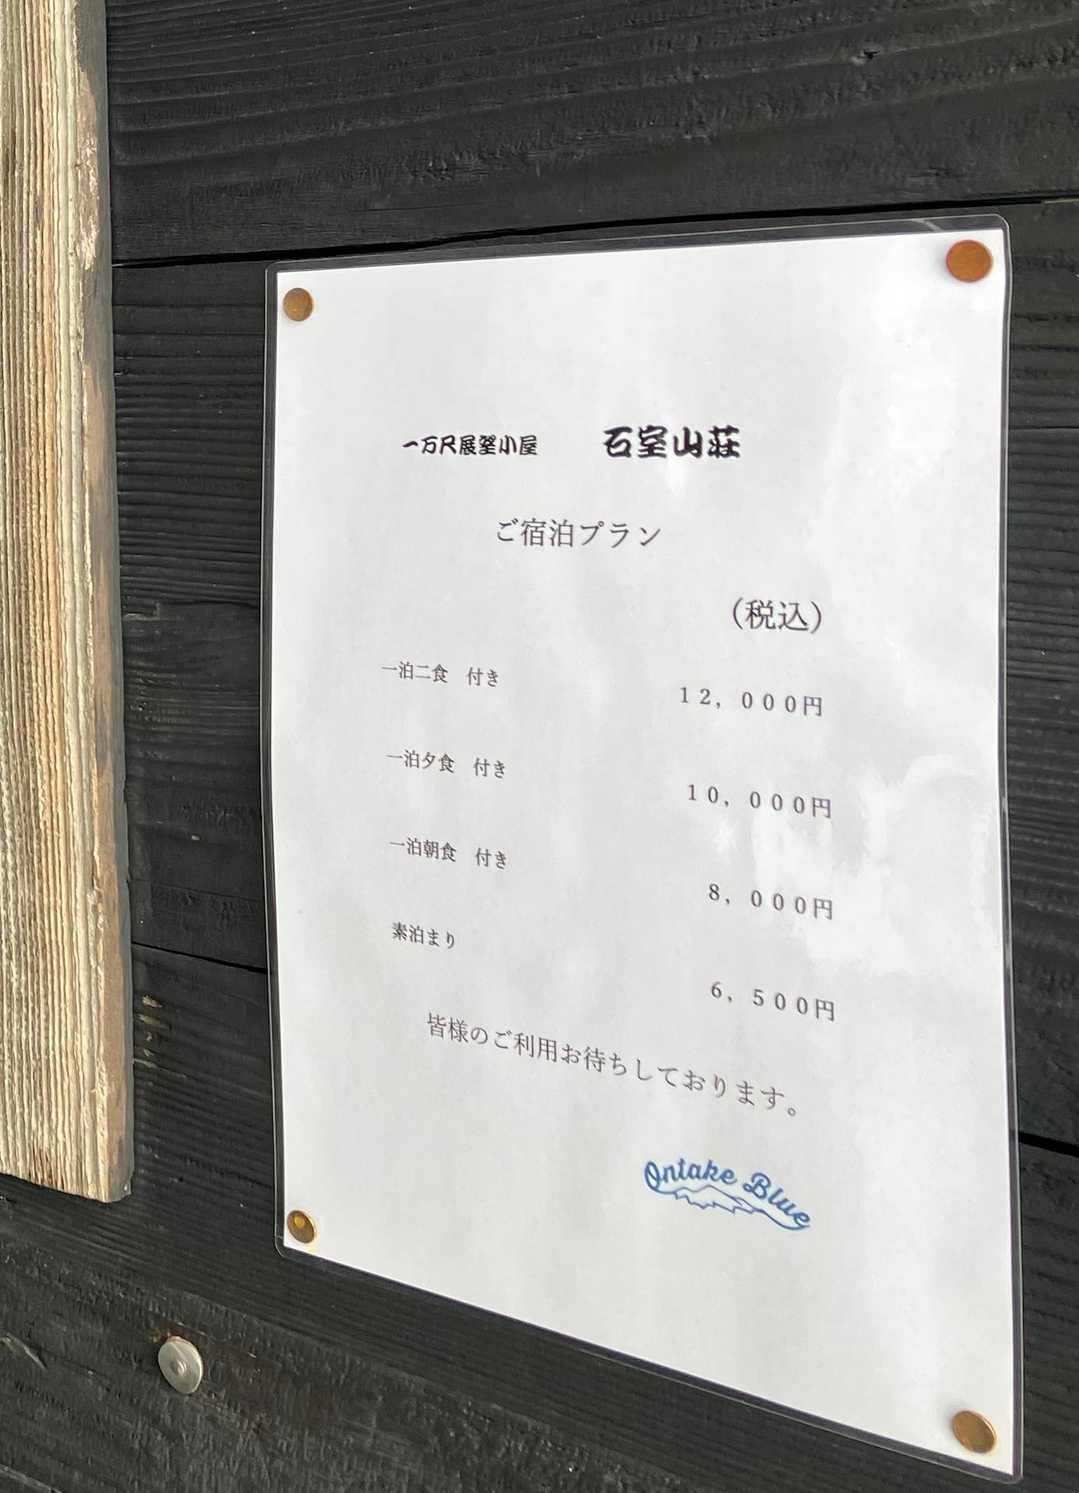 一万尺展望小屋　石室山荘
ご宿泊プラン
（税込）
一泊二食　付き　１２，０００円
一泊夕食　付き　１０，０００円
一泊朝食　付き　８，０００円
素泊まり　６，５００円
皆様のご利用お待ちしております。
Ontake Blue